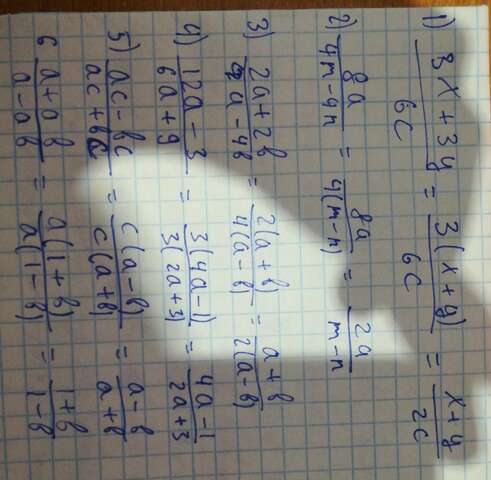 1) (3x+3y)/(6c) = (3(x+y))/(6c) = (x+y)/(2c)
2) (8a)/(4m-4n) = (8a)/(4(m-n)) = (2a)/(m-n)
3) (2a+2b)/(4a-4b) = (2(a+b))/(4(a-b)) = (a+b)/(2(a-b))
4) (12a-3)/(6a+9) = (3(4a-1))/(3(2a+3)) = (4a-1)/(2a+3)
5) (ac-bc)/(ac+bc) = (c(a-b))/(c(a+b)) = (a-b)/(a+b)
6 (a+ab)/(a-ab) = (a(1+b))/(a(1-b)) = (1+b)/(1-b)